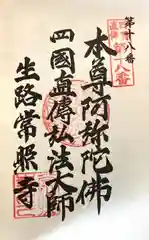 第十八番
第十八番
本尊阿弥陀佛
四國直傳弘法大師
生路常照寺